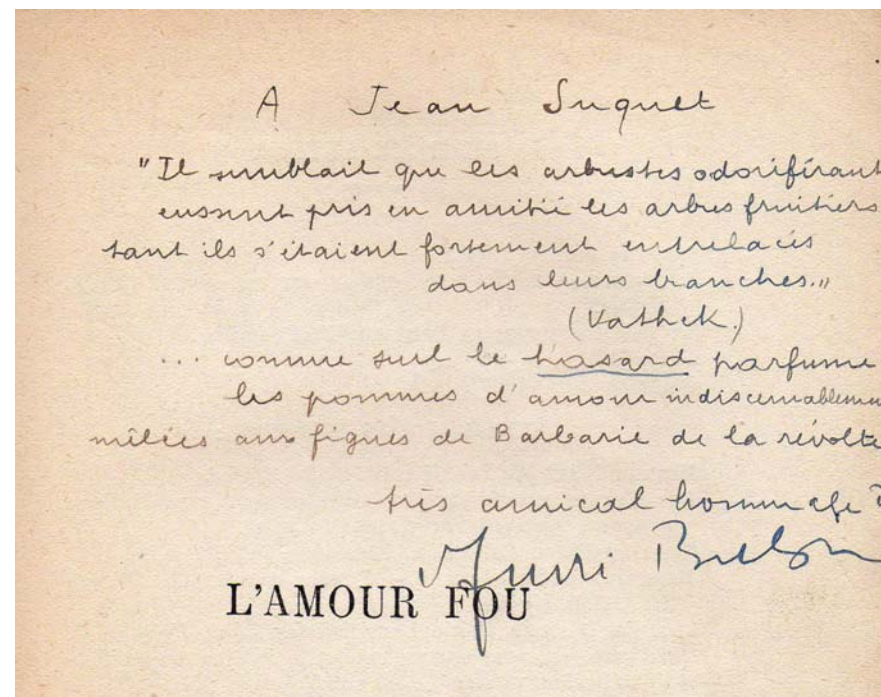 A Jean Suquet
"Il semblait que les arbustes odoriférant
eussent pris en amitié les arbres fruitiers
tant ils s'étaient fortement entrelacés
dans leurs branches."
(Vathek.)
... comme seul le hasard parfume
les pommes d'amour indiscernableme
mêlées aux figues de Barbarie de la révolte
très amical hommage d
L'AMOUR FOU